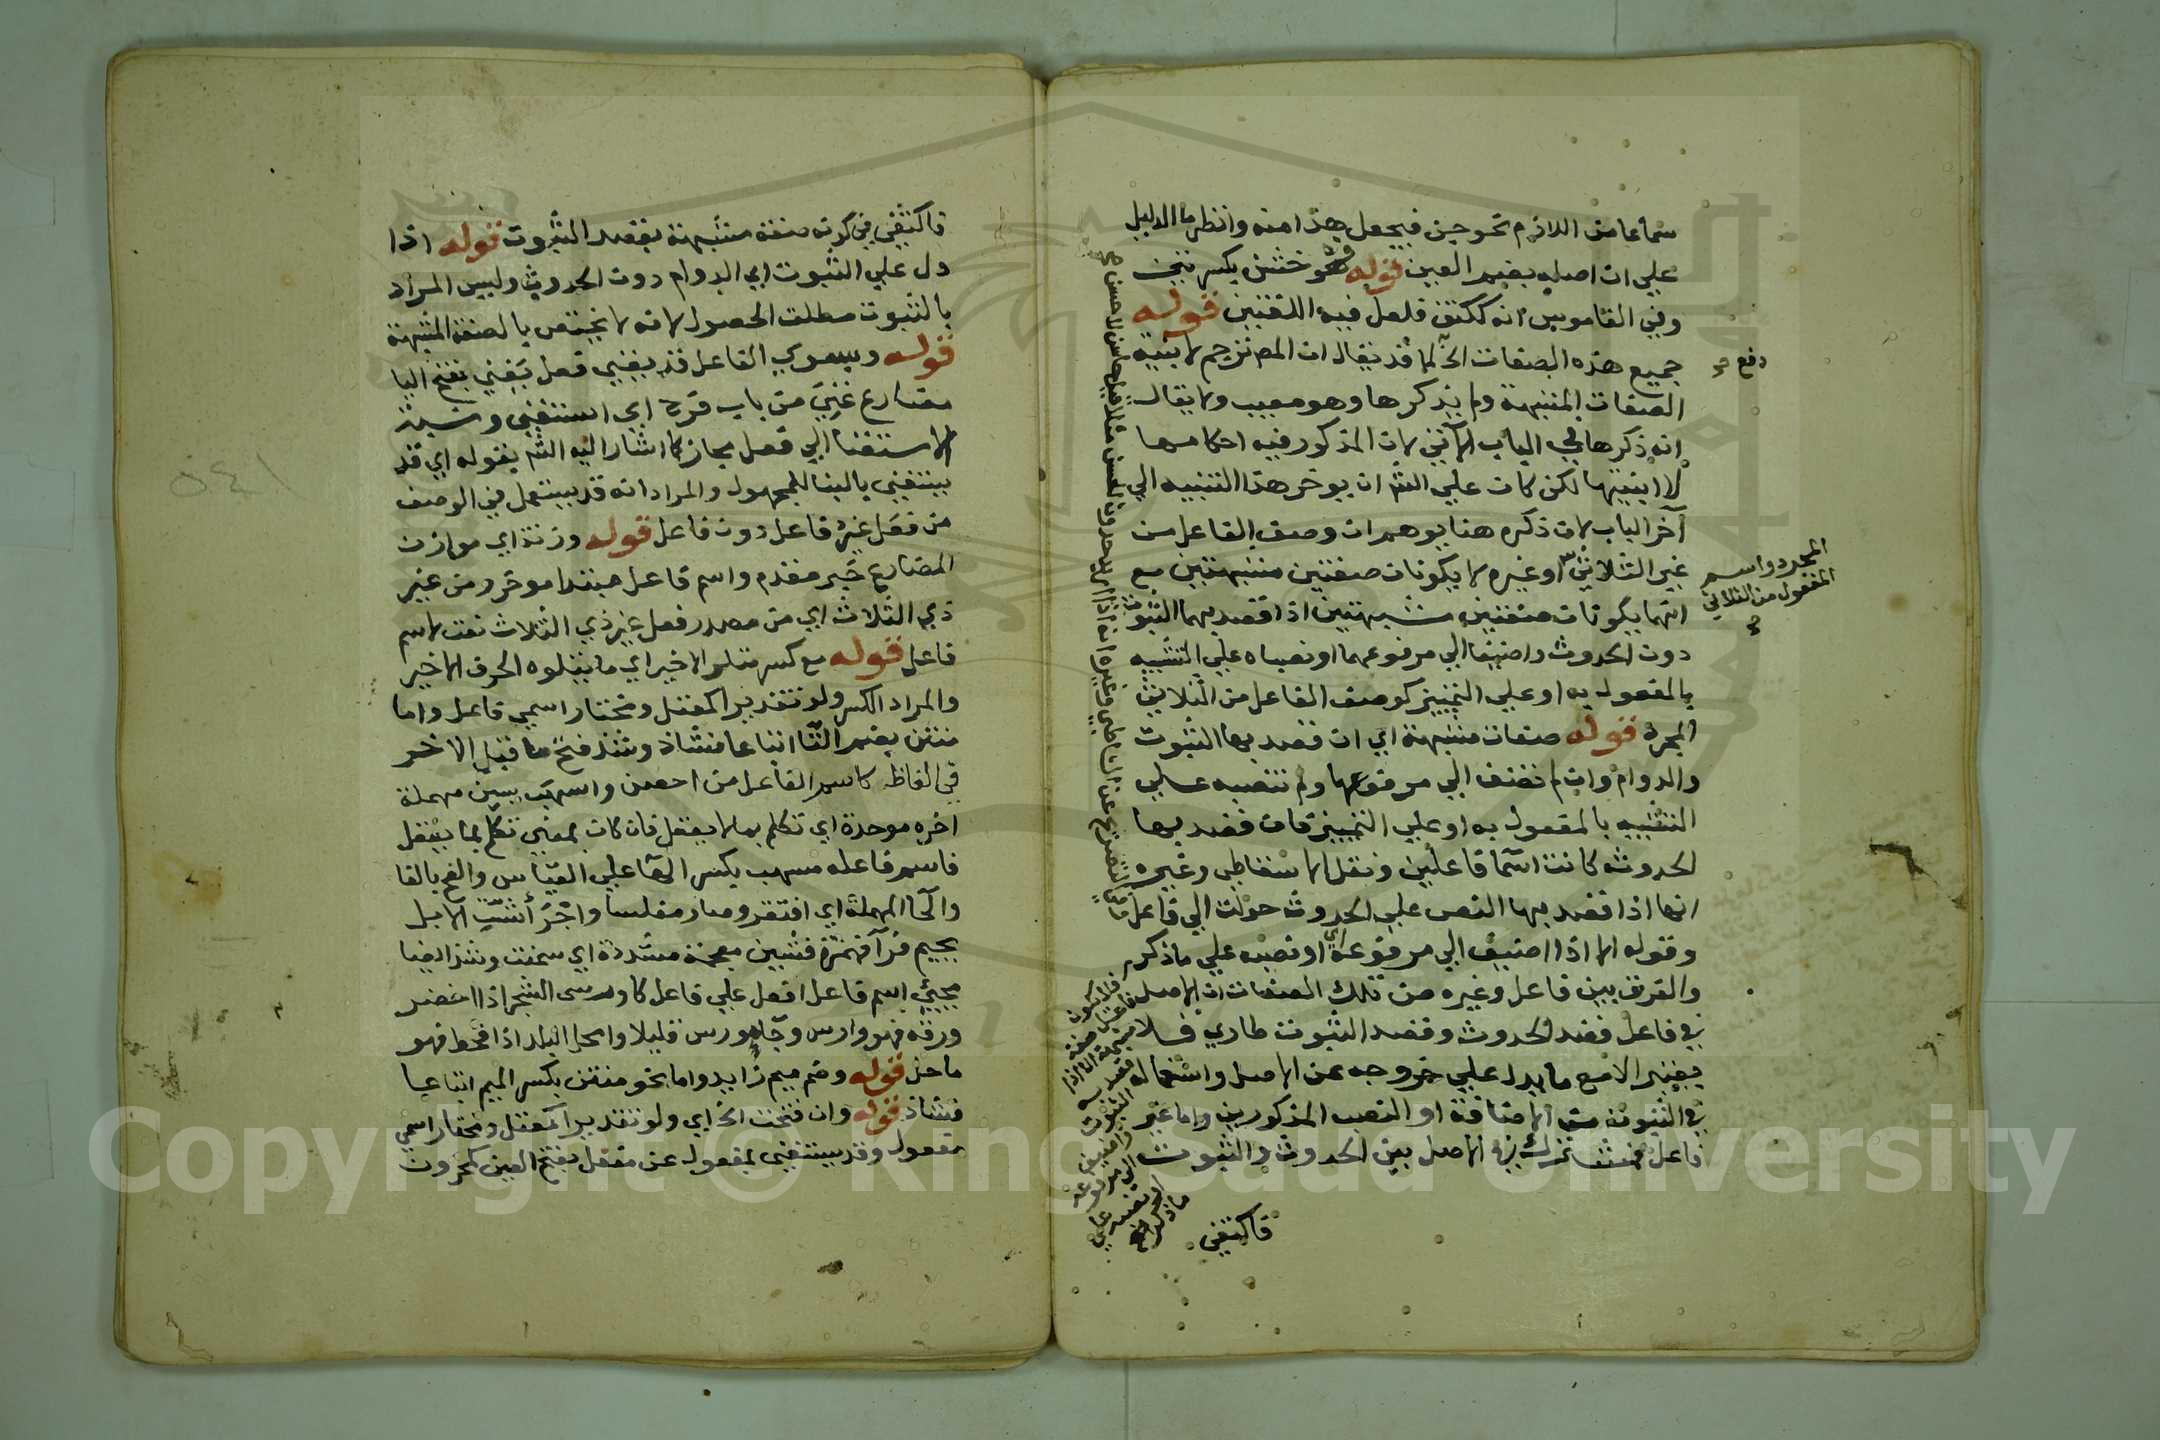 سماعا من اللازم نحو جبن فيجعل هذا منه وانظر ما الدليل
علي ان اصله بضم العين قوله نحو خشن بكسرتين
وفي القاموس انه ككتف فلعل فيه اللغتين قوله
جميع هذه الصفات الخ لما قد يقال ان المص ترجم لابنية
الصفات المشبهة ولم يذكرها وهو معيب ولا يقال
انه ذكرها في الباب الآتي لان المذكور فيه احكامها
لا ابنيتها لكن كان علي الش ان يوخر هذا التنبيه الي
آخر الباب لان ذكره هنا يوهم ان وصف الفاعل من
غير الثلاثي او غيره لا يكونان صفتين مشبهتين مع
انهما يكونان صفتين مشبهتين اذا قصد بهما الثبوت
دون الحدوث واضيفا الي مرفوعهما او نصباه علي التشبيه
بالمفعول به او علي التمييز كوصف الفاعل من الثلاثي
المجرد قوله صفات مشبهة اي ان قصد بها الثبوت
والدوام وان لم تضف الي مرفوعها ولم تنصبه علي
التشبيه بالمفعول به او علي التمييز فان قصد بها
الحدوث كانت اسما فاعلين ونقل الاسقاطي وغيره
انها اذا قصد بها النص علي الحدوث حولت الي فاعل
وقوله الا اذا اضيف الي مرفوعه اي او نصبه علي ما ذكر
والفرق بين فاعل وغيره من تلك الصفات ان الاصل
في فاعل قصد الحدوث وقصد الثبوت طاري فلا
يعتبر الا مع ما يدل علي خروجه عن الاصل واستعماله
في الثبوت من الاضافة او النصب المذكورين واما غير
فاعل فمشترك في الاصل بين الحدوث والثبوت
فاكتفي
دفع
المجرد واسم
المفعول من الثلاثي
فلا يكون
فاعل صفة
مشبهة الا اذا
قصد به
الثبوت
واضيف
الي مرفوعه
او نصبه علي
ما ذكر
فاكتفي في كونه صفة مشبهة بقصد الثبوت قوله اذا
دل علي الثبوت اي الدوام دون الحدوث وليس المراد
بالثبوت مطلق الحصول لانه لا يختص بالصفة المشبهة
قوله وبسوي الفاعل قد يغني فعل يغني بفتح اليا
مضارع غني من باب فرح اي استغني ونسبة
الاستغنا الي فعل مجاز كما اشار اليه الش بقوله اي قد
يستغني بالبنا للمجهول والمراد انه قد يستعمل في الوصف
من فعل غير فاعل دون فاعل قوله وزنة اي موازن
المضارع خبر مقدم واسم فاعل مبتدا موخر ومن غير
ذي الثلاث اي من مصدر فعل غير ذي الثلاث نعت لاسم
فاعل قوله مع كسر متلو الاخير اي ما يتلوه الحرف الاخير
والمراد الكسر ولو تقديرا كمعتل ومختار اسمي فاعل واما
منتن بضم التا اتباعا فشاذ وشذ فتح ما قبل الاخر
في الفاظ كاسم الفاعل من احصن واسهب بسين مهملة
اخره موحدة اي تكلم بما لا يعقل فان كان بمعني تكلم بما يعقل
فاسم فاعله مسهب بكسر الها علي القياس والفج بالفا
والحا المهملة اي افتقر وصار مفلسا واجرأشت الابل
بجيم فرآ فهمزة فشين معجمة مشددة اي سمنت وشذ ايضا
مجيئ اسم فاعل افعل علي فاعل كاورس الشجر اذا اخضر
ورقه فهو وارس وجا مورس قليلا وامحل البلد اذا قحط فهو
ماحل قوله وضم ميم زايد واما نحو منتن بكسر الميم اتباعا
فشاذ قوله وان فتحت الخ اي ولو تقديرا كمعتل ومختار اسمي
مفعول وقد يستغني بمفعول عن مفعل بفتح العين كمحزون